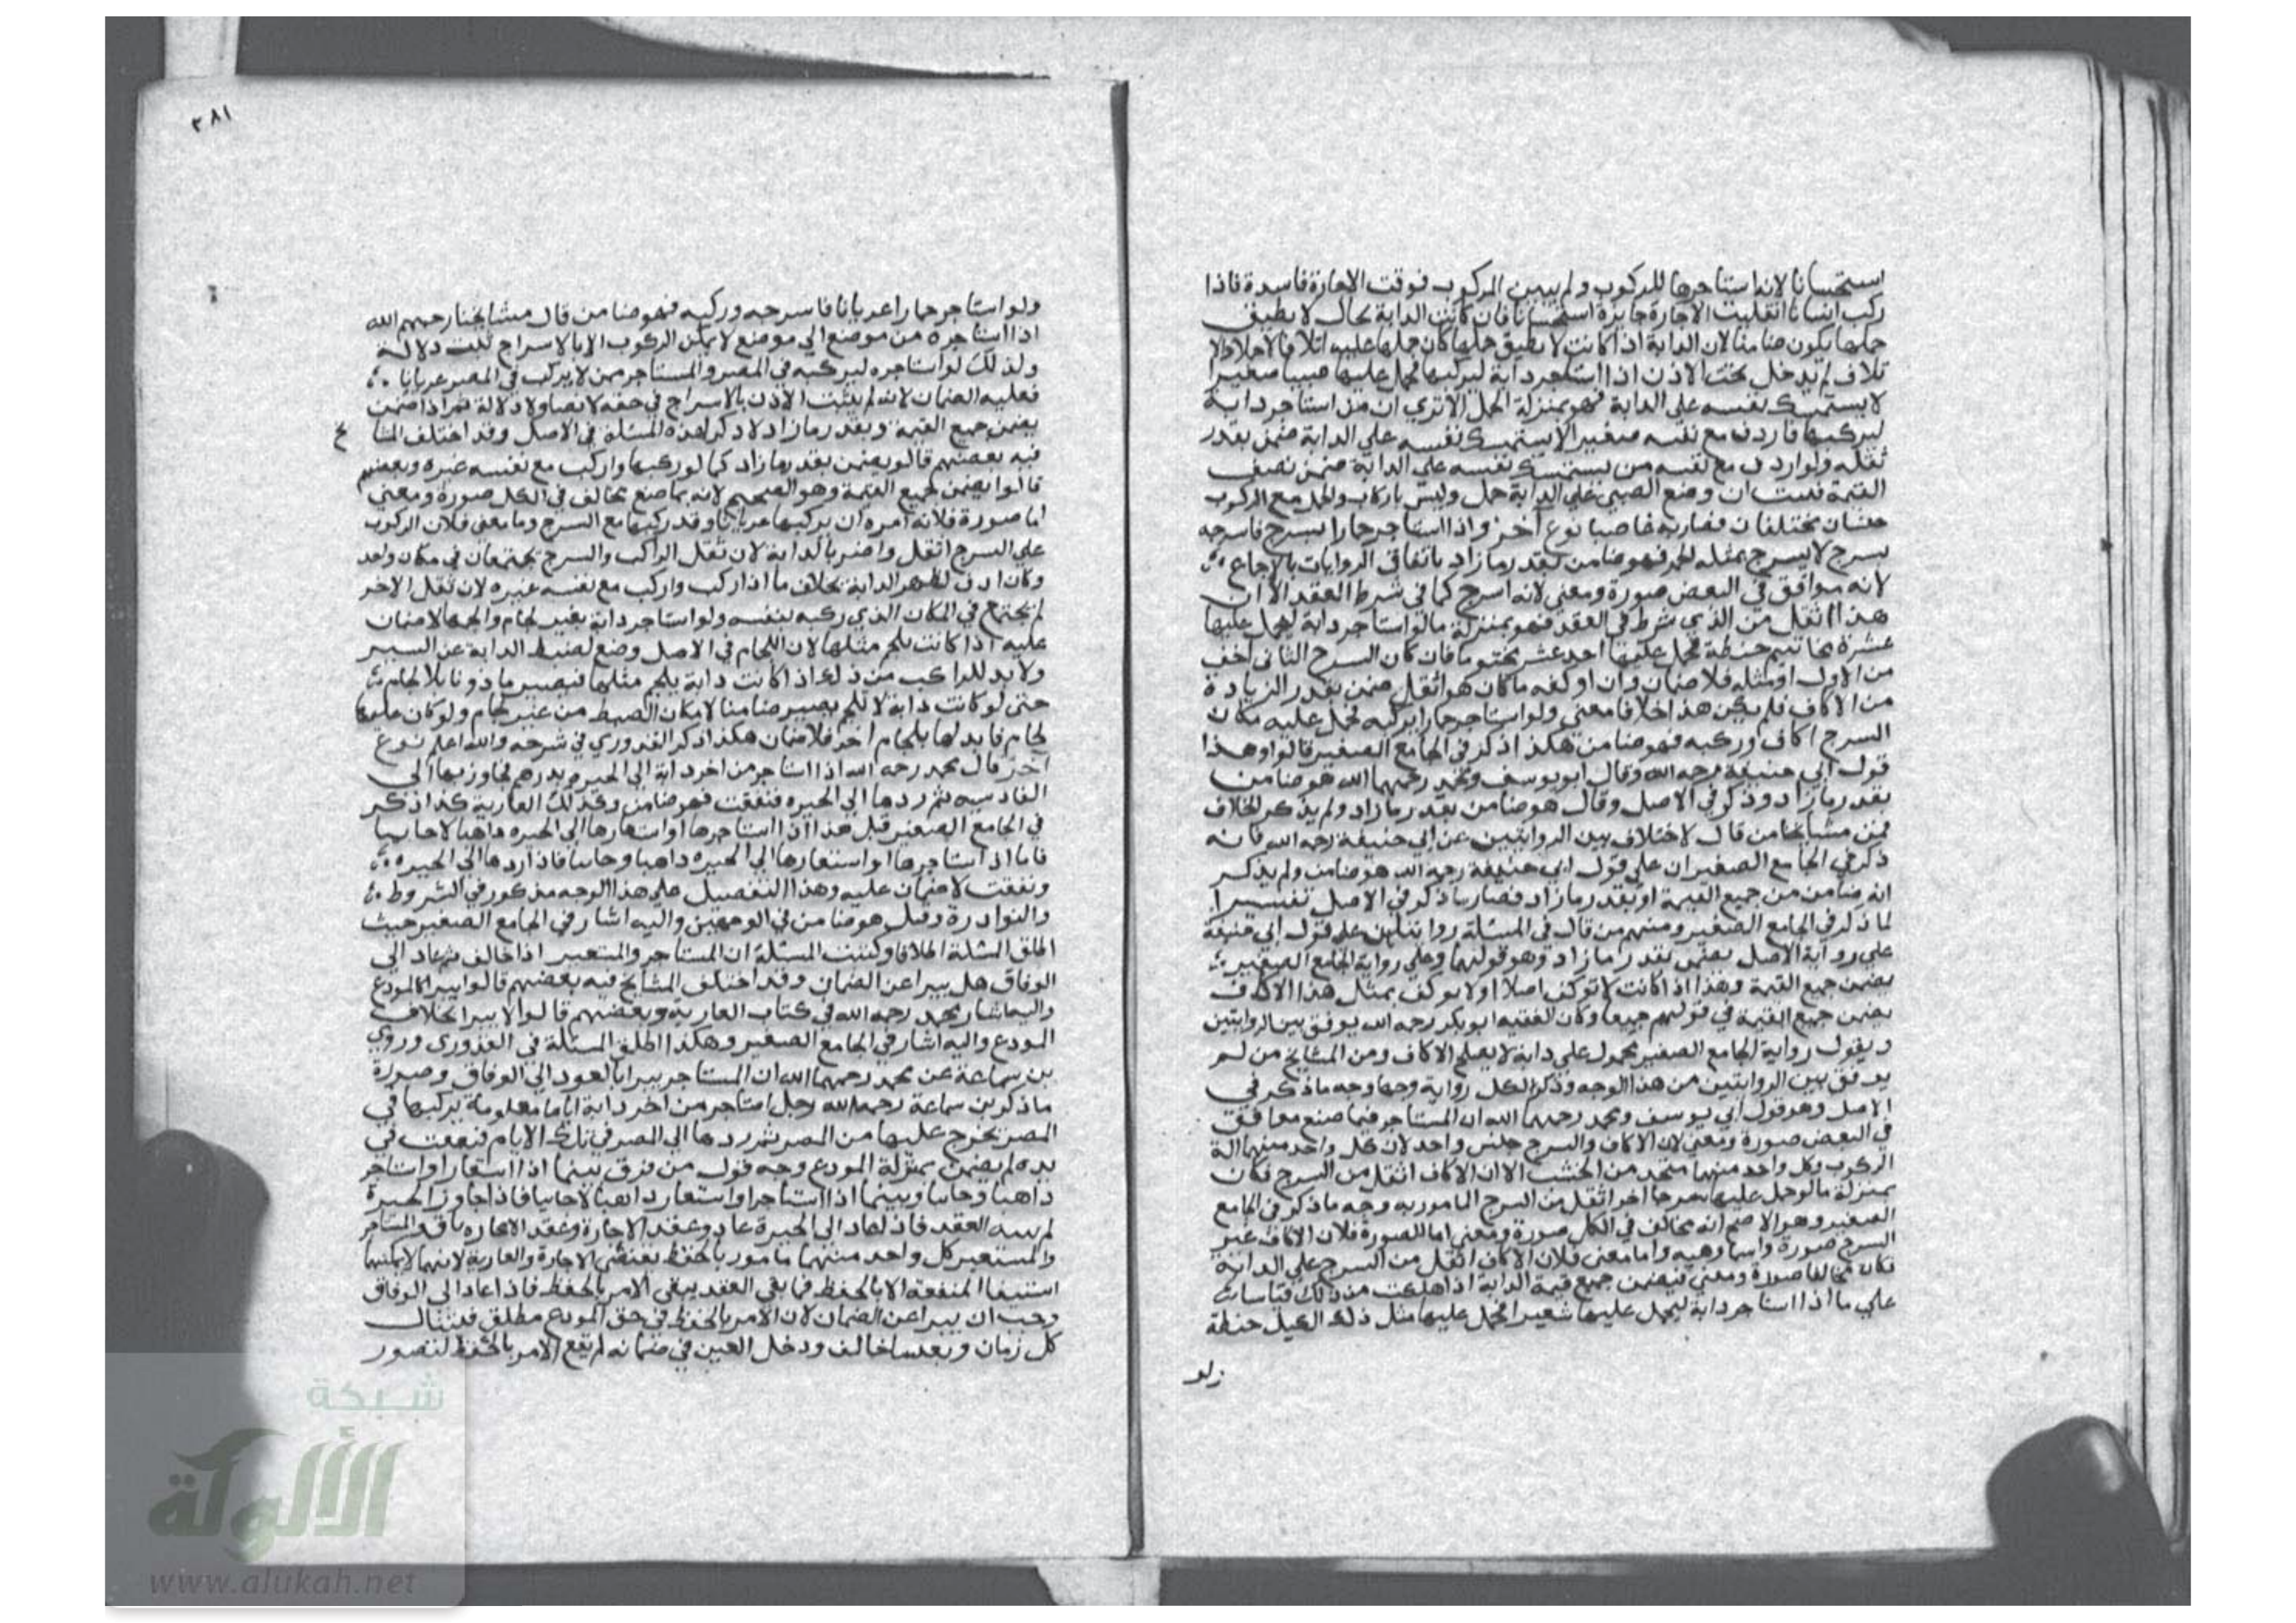 استحسانا لانه استاجرها للركوب ولم يبين المركوب فوقت الاجارة فاسدة فاذا
ركب انسانا انقلبت الاجارة جايزة استحسانا فان كانت الدابة بحال لا يطيق
حملها يكون ضامنا لان الدابة اذا كانت لا يطيق حملها كان حملها عليه اتلافا لاحملا والا
تلاف لم يدخل تحت الاذن اذا استاجر دابة ليركبها فحمل عليها صبيا صغيرا
لا يستمسك نفسه على الدابة فهو بمنزلة الحمل الا تري ان من استاجر دابة
ليركبها فاردف مع نفسه صغيرا لا يستمسك نفسه علي الدابة ضمن بقدر
ثقله ولو اردف مع نفسه من يستمسك نفسه علي الدابة ضمن نصف
القيمة فثبت ان وضع الصبي علي الدابة حمل وليس باركاب والحمل مع الركوب
جنسان مختلفان فصار به غاصبا نوع آخر واذا استاجر حمارا بسرج فاسرجه
بسرج لا يسرج بمثله الحمر فهو ضامن بقدر ما زاد باتفاق الروايات بالاجماع
لانه موافق في البعض صورة ومعني لانه اسرج كما في شرط العقد الا ان
هذا اثقل من الذي شرط في العقد فهو بمنزلة ما لو استاجر دابة ليحمل عليها
عشرة مخاتيم حنطة فحمل عليها احد عشر مختوما فان كان السرج الثاني اخف
من الاول او مثله فلا ضمان وان اوكفه ماكان هو اثقل ضمن بقدر الزيادة
من الاكاف فلم يكن هذا خلافا معني ولو استاجر حمارا يركبه فحمل عليه مكان
السرج اكاف وركبه فهو ضامن هكذا ذكر في الجامع الصغير قالوا وهذا
قول ابي حنيفة رحمه الله وقال ابو يوسف ومحمد رحمهما الله هو ضامن
بقدر ما زاد وذكر في الاصل وقال هو ضامن بقدر ما زاد ولم يذكر الخلاف
فمن مشايخنا من قال لاختلاف بين الروايتين عن ابي حنيفة رحمه الله فانه
ذكر في الجامع الصغير ان علي قول ابي حنيفة رحمه الله هو ضامن ولم يذكر
انه ضامن من جميع القيمة او بقدر ما زاد فصار ما ذكر في الاصل تفسيرا
لما ذكر في الجامع الصغير ومنهم من قال في المسئلة روايتان علي قول ابي حنيفة
علي رواية الاصل يضمن بقدر ما زاد وهو قولهما وعلي رواية الجامع الصغير
يضمن جميع القيمة وهذا اذا كانت لا توكف اصلا او لا يوكف بمثل هذا الاكاف
يضمن جميع القيمة في قولهم جميعا وكان الفقيه ابو بكر رحمه الله يوفق بين الروايتين
ويقول رواية الجامع الصغير محمول علي دابة لا يصلح الاكاف ومن المشايخ من لم
يوفق بين الروايتين من هذا الوجه وذكر لكل رواية وجها وجه ما ذكر في
الاصل وهو قول ابي يوسف ومحمد رحمهما الله ان المستاجر فيما صنع موافق
في البعض صورة ومعني لان الاكاف والسرج جنس واحد لان كل واحد منهما الة
الركوب وكل واحد منهما متخذ من الخشب الا ان الاكاف اثقل من السرج فكان
بمنزلة ما لو حمل عليها سرجا اخر اثقل من السرج المامور به وجه ما ذكر في الجامع
الصغير وهو الاصح انه يخالف في الكل صورة ومعني اما الصورة فلان الاكاف غير
السرج صورة واسما وهيه واما معني فلان الاكاف اثقل من السرج علي الدابة
فكان مخالفا صورة ومعني فيضمن جميع قيمة الدابة اذا هلكت من ذلك قياسا
علي ما اذا استاجر دابة ليحمل عليها شعيرا فحمل عليها مثل ذلك الكيل حنطة
٣٨١
ولو استاجر حمارا عريانا فاسرجه وركبه فهو ضامن قال مشايخنا رحمهم الله
اذا استاجره من موضع الي موضع لا يمكن الركوب الا بالاسراج ثبت دلالة
ولذلك لو استاجره ليركبه في المصر والمستاجر من لا يركب في المصر عريانا
فعليه الضمان لانه لم يثبت الاذن بالاسراج في حقه لا نصا ولا دلالة ثم اذا ضمن
يضمن جميع القيمة وبقدر ما زاد لا ذكر لهذه المسئلة في الاصل وقد اختلف المشا
فيه بعضهم قالوا يضمن بقدر ما زاد كما لو ركبها واركب مع نفسه غيره وبعضهم
قالوا يضمن جميع القيمة وهو الصحيح لانه بما صنع يخالف في الكل صورة ومعني
اما صورة فلانه امره ان يركبها عريانا وقد ركبها مع السرج وما معني فلان الركوب
علي السرج اثقل واضر بالدابة لان ثقل الراكب والسرج يجتمعان في مكان واحد
وكان ادق لظهر الدابة بخلاف ما اذا ركب واركب مع نفسه غيره لان ثقل الاخر
لم يجتمع في المكان الذي ركبه بنفسه ولو استاجر دابة بغير لجام والجمها لا ضمان
عليه اذا كانت يلجم مثلها لان اللجام في الاصل وضع لضبط الدابة عن السير
ولا بد للراكب من ذلك اذا كانت دابة يلجم مثلها فيصير ماذونا بلا لجام
حتى لو كانت دابة لا تلجم يصير ضامنا لامكان الضبط من غير لجام ولو كان عليها
لجام فابدلها بلجام اخر فلا ضمان هكذا ذكر القدوري في شرحه والله اعلم نوع
اخر قال محمد رحمه الله اذا استاجر من اخر دابة الي الحيره بدرهم فجاوز بها الي
القادسيه ثم ردها الي الحيره فنفقت فهو ضامن وكذلك العارية كذا ذكر
في الجامع الصغير قيل هذا اذا استاجرها او استعارها الي الحيره ذاهبا لا جاييا
فاما اذا استاجرها او استعارها الي الحيره ذاهبا وجاييا فاذا ردها الي الحيره
ونفقت لا ضمان عليه وهذا التفصيل علي هذا الوجه مذكور في الشروط
والنوادرة وقيل هو ضامن في الوجهين واليه اشار في الجامع الصغير حيث
اطلق المسئلة اطلاقا المسئلة ان المستاجر والمستعير اذا خالف ثم عاد الي
الوفاق هل يبرا عن الضمان وقد اختلف المشايخ فيه بعضهم قالوا يبرا كالمودع
واليه اشار محمد رحمه الله في كتاب العارية وبعضهم قالوا لا يبرا بخلاف
المودع واليه اشار في الجامع الصغير وهكذا اطلق المسئلة في القدوري وروي
بن سماعة عن محمد رحمهما الله ان المستاجر يبرا بالعود الي الوفاق وصورة
ما ذكر بن سماعة رحمه الله رجل استاجر من اخر دابة اياما معلومة يركبها في
المصر يخرج عليها من المصر ثم ردها الي المصر في تلك الايام فنفقت في
يده لم يضمن بمنزلة المودع وجه قول من فرق بينما اذا استعار او استاجر
ذاهبا وجاييا وبينما اذا استاجر او استعار ذاهبا لا جاييا فاذا جاوز الحيرة
لم العقد فاذا عاد الي الحيرة عاد وعقد الاجارة وعقد الاعاره باق والمستاجر
والمستعير كل واحد منهما مامور بالحفظ بمقتضي الاجارة والعارية لانهما لا يمكنهما
استيفا المنفعة الا بالحفظ فما بقي العقد يبقي الامر بالحفظ فاذا عاد الي الوفاق
وجب ان يبرا عن الضمان لان الامر بالحفظ في حق المودع مطلق فيتنال
كل زمان وبعدما خالف ودخل العين في ضمانه لم يقع الامر بالحفظ لتصور